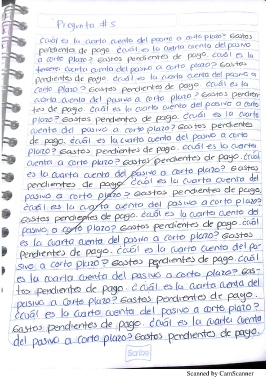 Pregunta #5
¿Cuál es la cuarta cuenta del pasivo a corto plazo? Gastos
pendientes de pago. ¿Cuál es la cuarta cuenta del pasivo
a corto plazo? Gastos
pendientes de pago. ¿Cuál es la cuarta cuenta del pasivo a
corto plazo? Gastos pendientes de pago. ¿Cuál es la
cuarta cuenta del pasivo a corto plazo? Gastos pendien-
tes de pago. ¿Cuál es la cuarta cuenta del pasivo a corto
plazo? Gastos pendientes de pago. ¿Cuál es la cuarta
cuenta del pasivo a corto plazo? Gastos pendientes
de pago. ¿Cuál es la cuarta cuenta del pasivo a corto
plazo? Gastos pendientes de pago. ¿Cuál es la cuarta
cuenta a corto plazo? Gastos pendientes de pago. ¿Cuál
es la cuarta cuenta del pasivo a corto plazo? Gastos
pendientes de pago. ¿Cuál es la cuarta cuenta del
pasivo a corto plazo? Gastos pendientes de pago.
¿Cuál es la cuarta cuenta del pasivo a corto plazo?
Gastos pendientes de pago. ¿Cuál es la cuarta cuenta del
pasivo a corto plazo? Gastos pendientes de pago. ¿Cuál
es la cuarta cuenta del pasivo a corto plazo? Gastos
pendientes de pago. ¿Cuál es la cuarta cuenta del pa-
sivo a corto plazo? Gastos pendientes de pago. ¿Cuál
es la cuarta cuenta del pasivo a corto plazo? Gas-
tos pendientes de pago. ¿Cuál es la cuarta cuenta del
pasivo a corto plazo? Gastos pendientes de pago.
¿Cuál es la cuarta cuenta del pasivo a corto plazo?
Gastos pendientes de pago. ¿Cuál es la cuarta cuenta
del pasivo a corto plazo? Gastos pendientes de pago.
Scribe
Scanned by CamScanner